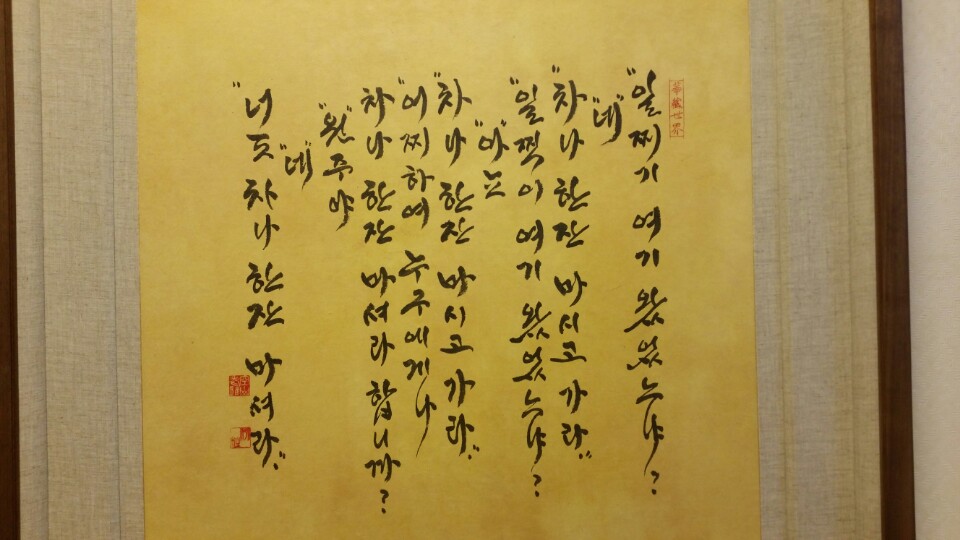 華藏世界
"일찌기 여기 왔었느냐?
"네"
"차나 한잔 마시고 가라."
"일찍이 여기 왔었느냐?
"아뇨
"차나 한잔 마시고 가라."
"어찌하여 누구에게나
차나 한잔 마셔라 합니까?
"원주야
"네"
"너도 차나 한잔 마셔라."